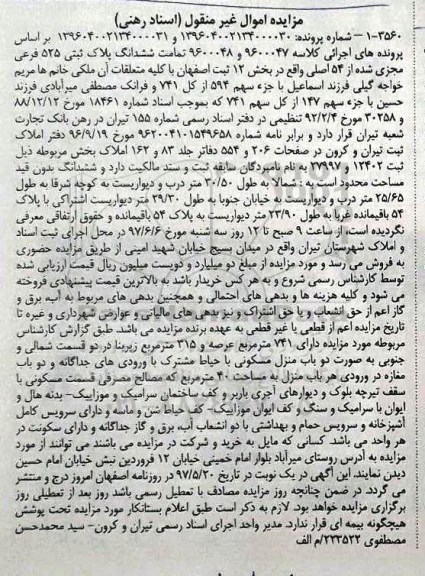 مزایده اموال غیر منقول (اسناد رهنی)
۱-۳۵۶۰ - شماره پرونده: ۱۳۹۶۰۴۰۰۲۱۳۴۰۰۰۰۳۰ و ۱۳۹۶۰۴۰۰۲۱۳۴۰۰۰۰۳۱ بر اساس
پرونده های اجرائی کلاسه ۹۶۰۰۰۴۷ و ۹۶۰۰۰۴۸ تمامت ششدانگ پلاک ثبتی ۵۲۵ فرعی
مجزی شده از ۵۴ اصلی واقع در بخش ۱۲ ثبت اصفهان با کلیه متعلقات آن ملکی خانم ها مریم
خواجه گیلی فرزند اسماعیل با جزء سهم ۵۹۴ از کل ۷۴۱ و فرانک مصطفی میرآبادی فرزند
حسین با جزء سهم ۱۴۷ از کل سهم ۷۴۱ که بموجب اسناد شماره ۱۸۴۶۱ مورخ ۸۸/۱۲/۱۲
و ۳۰۲۵۸ مورخ ۹۲/۲/۴ تنظیمی در دفتر اسناد رسمی شماره ۱۵۵ تیران در رهن بانک تجارت
شعبه تیران قرار دارد و برابر نامه شماره ۹۶۲۰۰۴۱۰۱۵۴۹۶۵۸ مورخ ۹۶/۹/۱۹ دفتر املاک
ثبت تیران و کرون در صفحات ۲۰۶ و ۵۵۴ دفاتر جلد ۸۳ و ۱۶۲ املاک بخش مربوطه ذیل
ثبت ۱۲۴۰۲ و ۲۷۹۹۷ به نام نامبردگان سابقه ثبت و سند مالکیت دارد و ششدانگ بدون قید
مساحت محدود است به: شمالا به طول ۳۰/۵۰ متر درب و دیواریست به کوچه شرقا به طول
۲۵/۶۵ متر درب و دیواریست به خیابان جنوبا به طول ۲۹/۳۰ متر دیواریست اشتراکی با پلاک
۵۴ باقیمانده غربا به طول ۲۳/۹۰ متر دیواریست به پلاک ۵۴ باقیمانده و حقوق ارتفاقی معرفی
نگردیده است، از ساعت ۹ صبح تا ۱۲ روز سه شنبه مورخ ۹۷/۶/۶ در محل اجرای ثبت اسناد
و املاک شهرستان تیران واقع در میدان بسیج خیابان شهید امینی از طریق مزایده حضوری
به فروش می رسد و مورد مزایده از مبلغ دو میلیارد و دویست میلیون ریال قیمت ارزیابی شده
توسط کارشناس رسمی شروع و به هر کس خریدار باشد به بالاترین قیمت پیشنهادی فروخته
می شود و کلیه هزینه ها و بدهی های احتمالی و همچنین بدهی های مربوط به آب، برق و
گاز اعم از حق انشعاب و یا حق اشتراک و نیز بدهی های مالیاتی و عوارض شهرداری و غیره تا
تاریخ مزایده اعم از قطعی یا غیر قطعی به عهده برنده مزایده می باشد. طبق گزارش کارشناس
مربوطه مورد مزایده دارای ۷۴۱ مترمربع عرصه و ۳۱۵ مترمربع زیربنا در دو قسمت شمالی و
جنوبی به صورت دو باب منزل مسکونی با حیاط مشترک با ورودی های جداگانه و دو باب
مغازه در ورودی هر باب منزل به مساحت ۴۰ مترمربع که مصالح مصرفی قسمت مسکونی با
سقف تیرچه بلوک و دیوارهای آجری باربر و کف ساختمان سرامیک و موزاییک- بدنه هال و
ایوان با سرامیک و سنگ و کف ایوان موزاییک- کف حیاط شن و ماسه و دارای سرویس کامل
آشپزخانه و سرویس حمام و بهداشتی با دو انشعاب آب، برق و گاز جداگانه و دارای سکونت در
هر واحد می باشد. کسانی که مایل به خرید و شرکت در مزایده می باشند می توانند از مورد
مزایده به آدرس روستای میرآباد بلوار امام خمینی خیابان ۱۲ فروردین نبش خیابان امام حسین
دیدن نمایند. این آگهی در یک نوبت در تاریخ ۹۷/۵/۲۰ در روزنامه اصفهان امروز درج و منتشر
می گردد. در ضمن چنانچه روز مزایده مصادف با تعطیل رسمی باشد روز بعد از تعطیلی روز
برگزاری مزایده خواهد بود. لازم به ذکر است طبق اعلام بستانکار مورد مزایده تحت پوشش
هیچگونه بیمه ای قرار ندارد. مدیر واحد اجرای اسناد رسمی تیران و کرون- سید محمدحسن
مصطفوی ۲۳۳۵۲۲/م الف